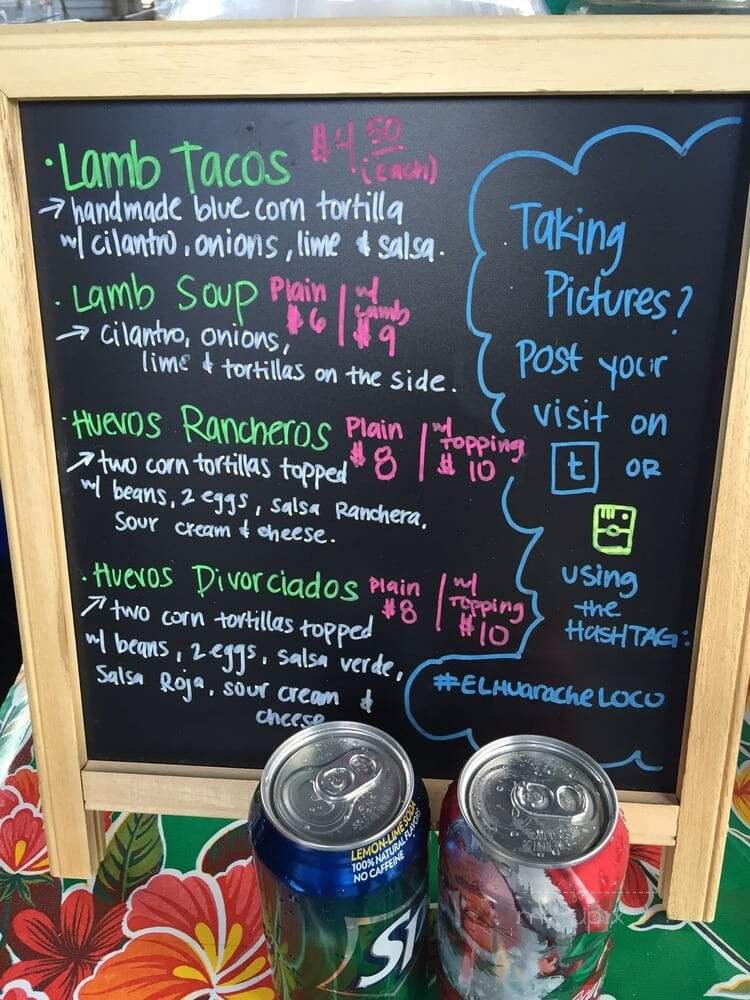 · Lamb Tacos $4 50 (each)
→ handmade blue corn tortilla
w/ cilantro, onions, lime & salsa.
· Lamb Soup Plain $6 | w/ Lamb $9
→ cilantro, onions,
lime & tortillas on the side.
· Huevos Rancheros Plain $8 | w/ topping $10
→ two corn tortillas topped
w/ beans, 2 eggs, salsa Ranchera,
sour cream & cheese.
· Huevos Divorciados Plain $8 | w/ Topping $10
→ two corn tortillas topped
w/ beans, 2 eggs, salsa verde,
Salsa Roja, sour cream &
cheese
Taking
Pictures?
Post your
visit on
t OR
using
the
HASHTAG:
#ELHuaracheLOCO
LEMON-LIME SODA
100% NATURAL FLAVORS
NO CAFFEINE